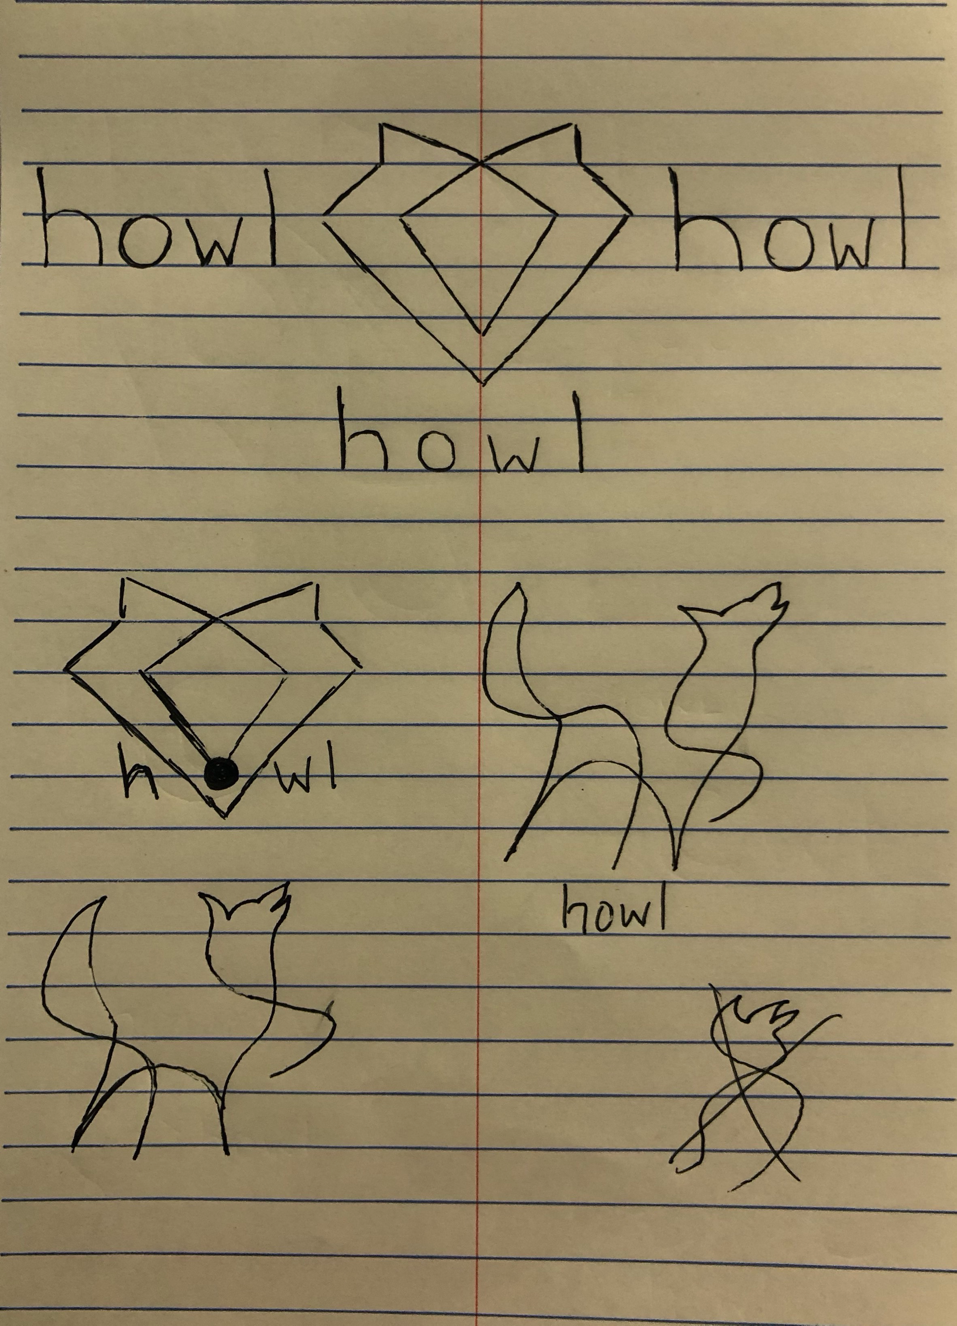 howl howl
howl
h wl
howl